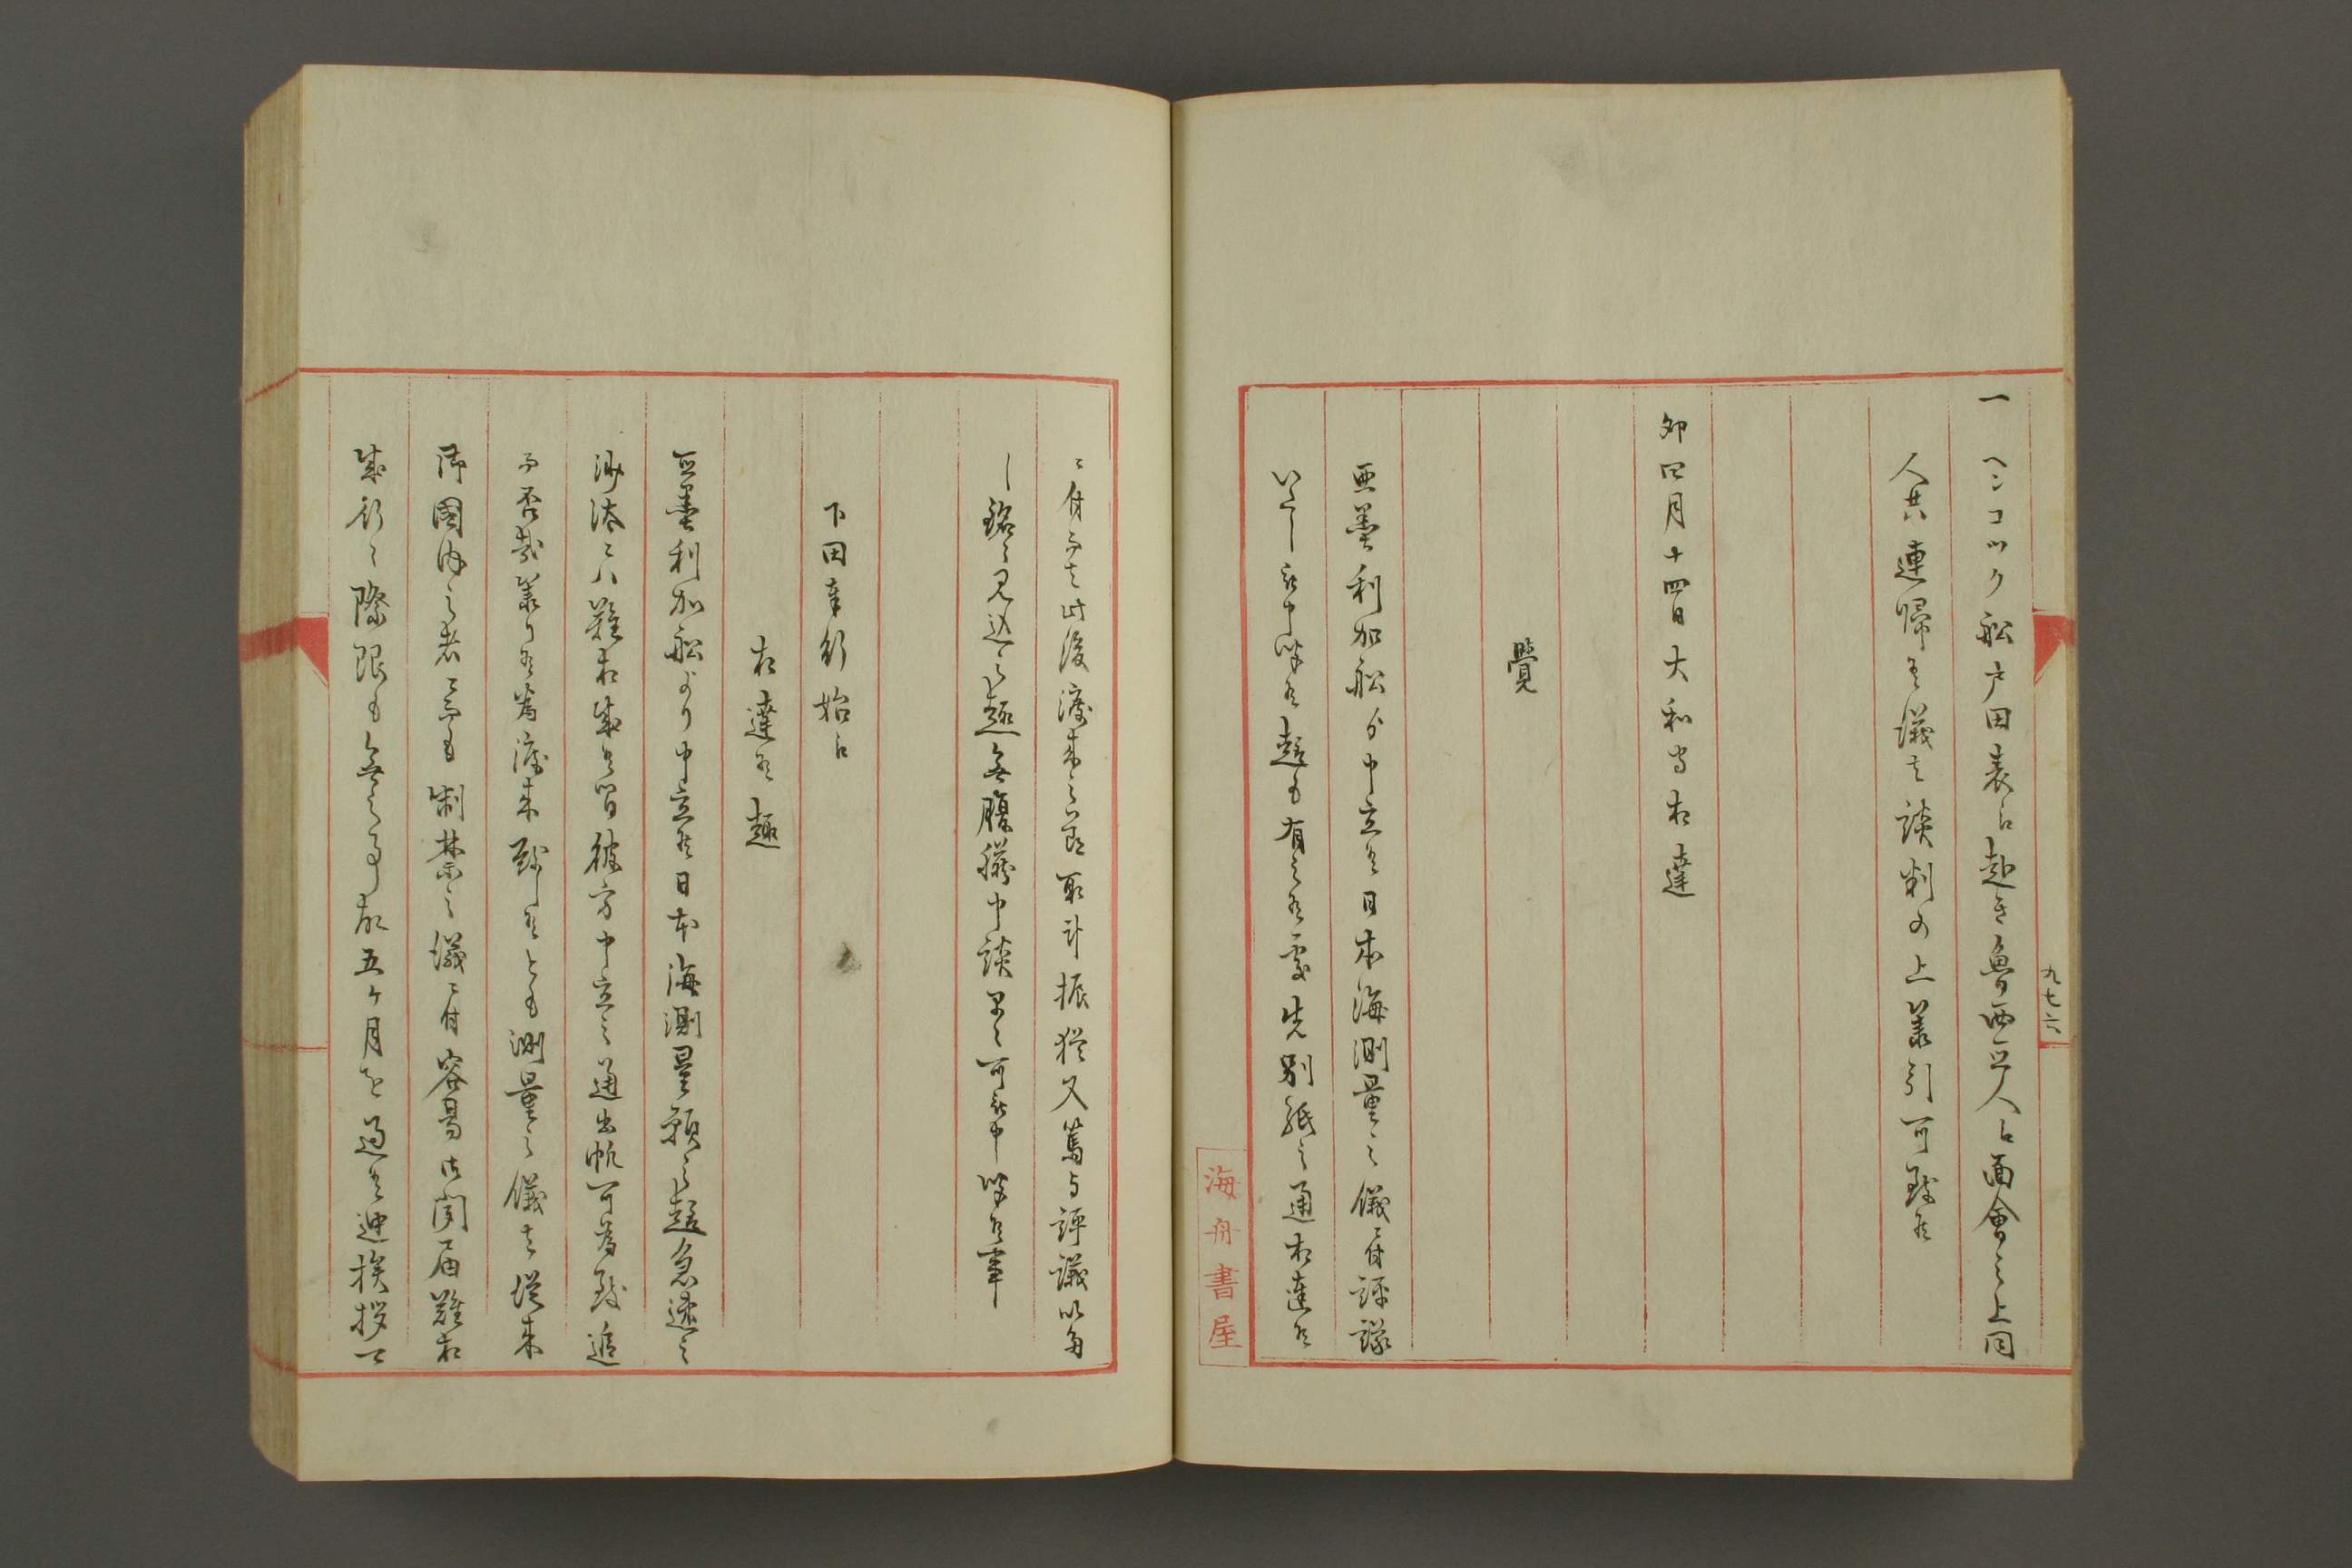 九七六
一 ヘンコツク船戸田表江赴き魯西亜人江面會之上同
人共連帰候儀者談判の上差引可致候
卯四月十四日大和守相達
覺
亜墨利加船ゟ申立候日本海測量之儀ニ付評議
いたし被申聞候趣も有之候處先別紙之通相達候
ニ付而者此後渡来之節取計振猶又篤与評議以多
し銘々見込之趣無腹臓申談早々可被申聞候事
下田奉行始江
相達候趣
亜墨利加船より申立候日本海測量願之趣急速之
御沙汰ニハ難相成候間彼方申立之通出帆可為致追
而否哉承り候為渡来致し候とも測量之儀者従来
御國内之者ニ而も制禁之儀ニ付容易御聞届難相
成行々際限も無之事故五ヶ月を過候迚挨拶
海舟書屋